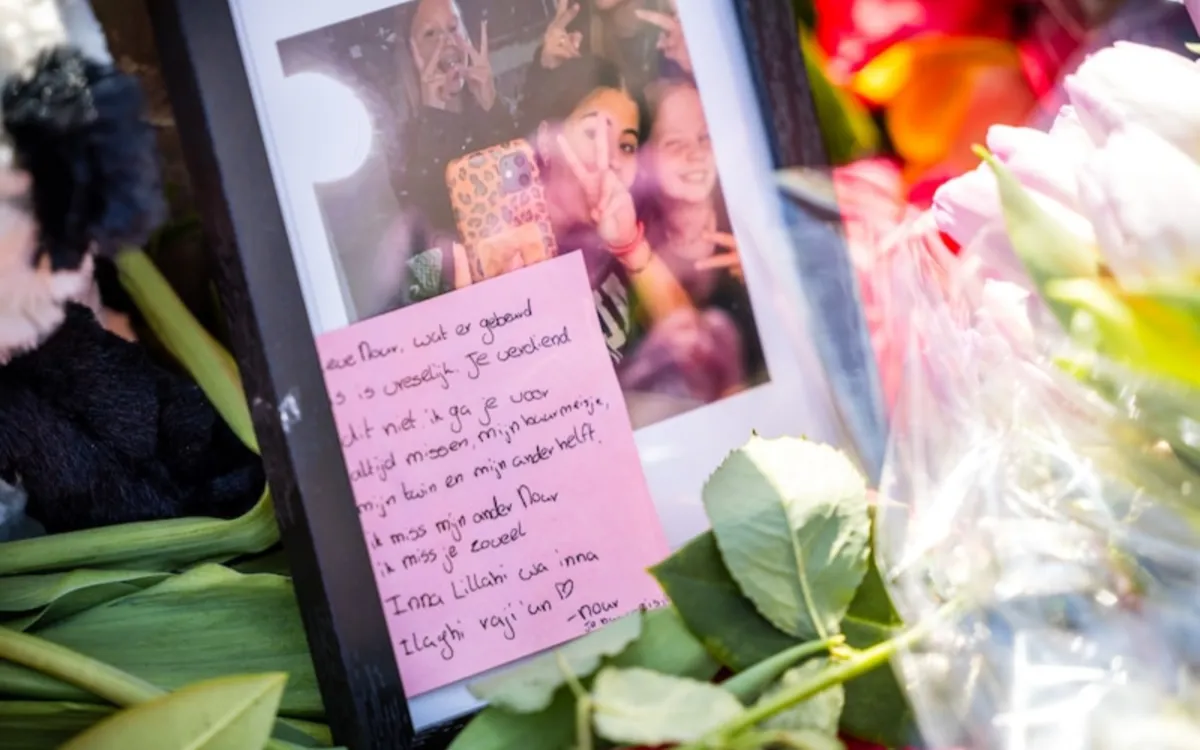 eve Nour, wat er gebeurd
s is vreselijk. Je verdiend
dit niet. ik ga je voor
altijd missen, mijn buurmeisje,
mijn twin en mijn ander helft.
ik miss mijn ander Nour
ik miss je zoveel
Inna Lillahi wa inna
Ilayhi raji'un ♡
-nour